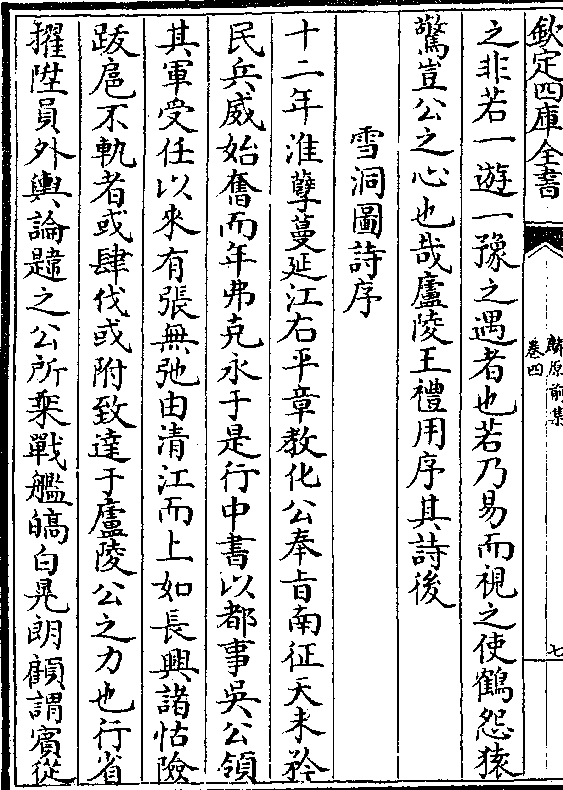 欽定四庫全書
麟原前集
卷四
七
之非若一遊一豫之遇者也若乃易而視之使鶴怨猿
驚豈公之心也哉廬陵王禮用序其詩後
雪洞圖詩序
十二年淮孽蔓延江右平章教化公奉旨南征天未矜
民兵威始奮而年弗克永于是行中書以都事吳公領
其軍受任以來有張無弛由清江而上如長興諸怙險
跋扈不軌者或肆伐或附致達于廬陵公之力也行省
擢陞員外輿論韙之公所乗戰艦皜白晃朗顧謂賓從